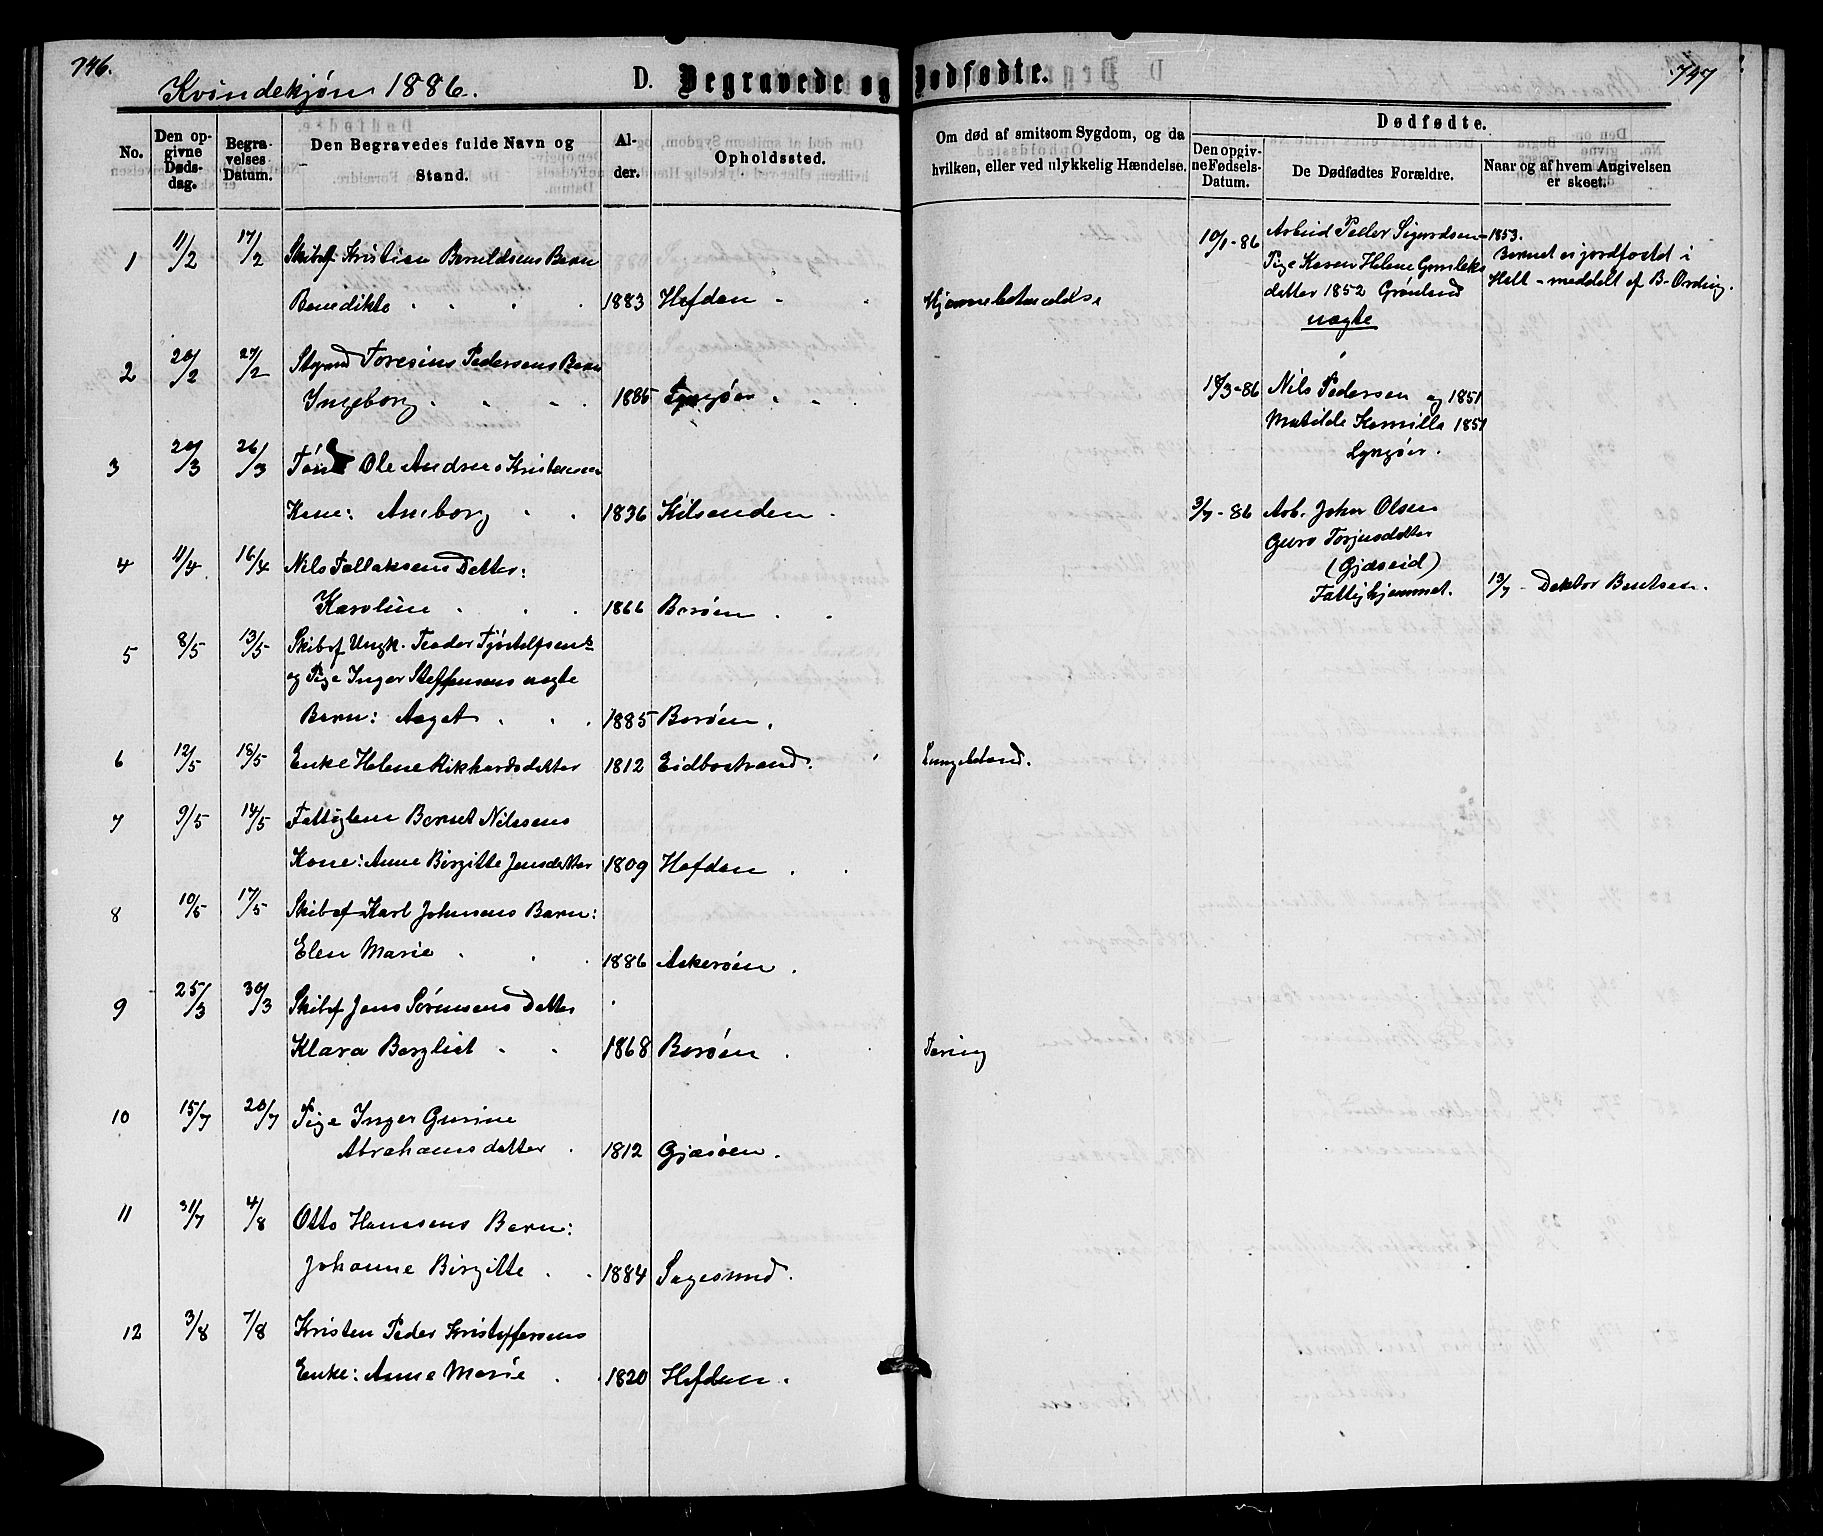 746.
747
Kvindekjøn 1886.
D. Begravede og Dødfødte.
No.
Den opgivne Dødsdag.
Begravelses Datum.
Den Begravedes fulde Navn og Stand.
Alder.
Opholdssted.
Om død af smitsom Sygdom, og da hvilken, eller ved ulykkelig Hændelse.
Dødfødte.
Den opgivne Fødsels-Datum.
De Dødfødtes Forældre.
Naar og af hvem Angivelsen er skeet.
1 11/2 17/2 Skibsf. Kristian Beruldsens Barn
Benedikte 1883 Hefden
2 20/2 27/2 Styrmd Toresius Pedersens Barn
Ingeborg 1885 Lyngøer
3 20/3 26/3 Ole Andreas Kristensens
Kone: Anborg 1836 Kilsenden
4 11/4 16/4 Nils Tallaksens Datter:
Karoline 1866 Borøen
5 8/5 13/5 Skibsf Ungk. Teodor Tjøstelfsens
og Pige Inger Steffensens uægte
Barn: Aaget 1885 Borøen.
6 12/5 18/5 Enke Helene Rikhardsdatter 1812 Eidbostrand. Lungebetænd.
7 9/5 14/5 Fattiglem Bernt Nilssens
Kone: Anne Birgitte Jensdatter 1809 Hefden
8 10/5 17/5 Skibsf Karl Johnsens Barn:
Elen Marie 1886 Askerøen
9 25/3 30/3 Skibsf Jens Sørensens Datter
Klara Bergliot 1868 Borøen Tæring
10 15/7 20/7 Pige Inger Gurine
Abrahamsdatter 1812 Gjæsøen.
11 31/7 4/8 Otto Hansens Barn:
Johanne Birgitte 1884 Sagesund.
12 3/8 7/8 Kristen Peder Kristoffersens
Enke: Anne Marie 1820 Hefden.
10/1-86 Arbeid Peder Sigurdsen 1853.
Pige Karen Helene Gunleks
datter 1852 Grønland
uægte
Barnet er jordfæstet i
Holt - meddelt af B. Ording.
18/3-86 Nils Pedersen og 1851
Matilde Kamilla 1851
Lyngøer.
3/7-86 Arb. John Olsen
Guro Torjusdatter
(Gjæseid)
Fattighjemmet.
13/7 - Doktor Bentsen.